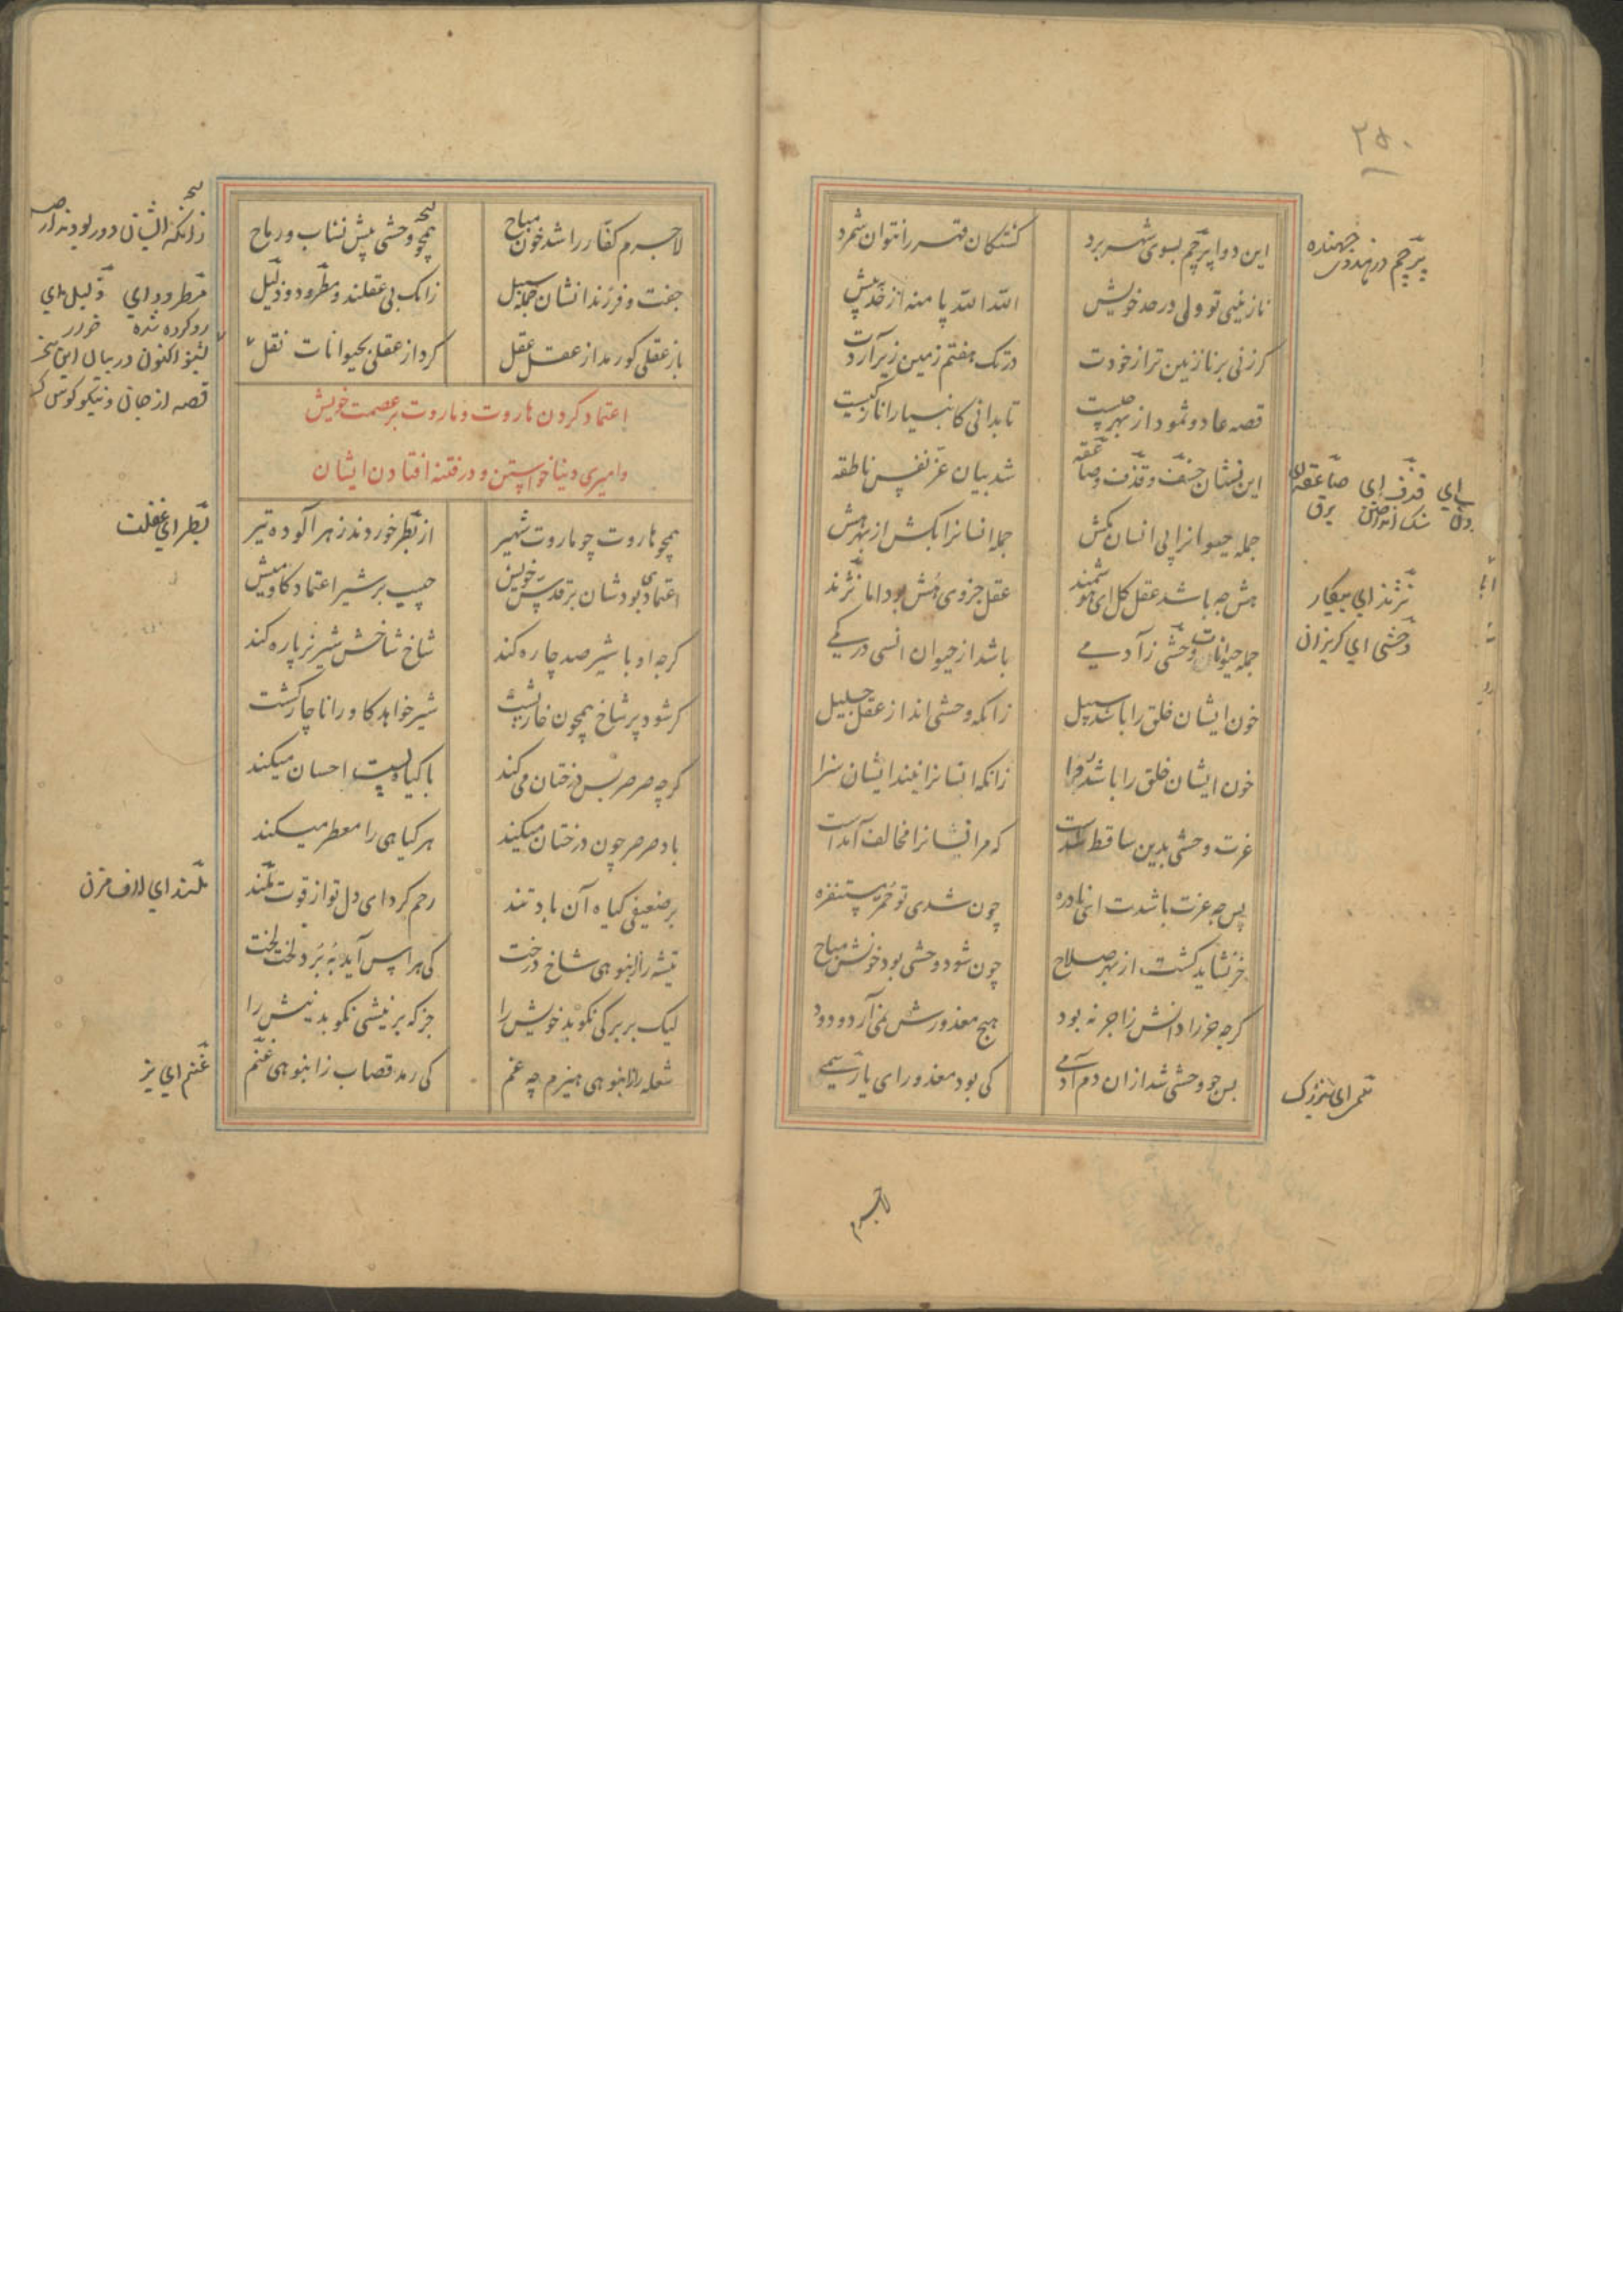 ۲۵۰
این دوا پرچم بسوی شهر برد کشتکان قهر را نتوان شمرد
نازنینی تو ولی در حد خویش الله الله پا منه از حد بیش
کر زنی بر نازنین تر از خودت در تک هفتم زمین زیر آردت
قصه عاد و ثمود از بهر چیست تا بدانی کانبیا را نازکیست
این نشان خسف و قذف و صاعقه شد بیان عز نفس ناطقه
جمله حیوانرا پی انسان بکش جمله انسانرا بکش از بهر هش
هش چه باشد عقل کل ای هوشمند عقل جزوی هش بود اما نژند
جمله حیوانات وحشی ز آدمی باشد از حیوان انسی در کمی
خون ایشان خلق را باشد سبیل زانکه وحشی اند از عقل جلیل
خون ایشان خلق را باشد روا زانکه انسانرا نیند ایشان سزا
عزت وحشی بدین ساقط شدست که مر انسانرا مخالف آمدست
پس چه عزت باشدت ای نادره چون شدی تو حمر مستنفره
خر نشاید کشت از بهر صلاح چون شود وحشی بود خونش مباح
کرچه خر را دانش زاجر نه بود هیچ معذورش نمی آرد ودود
پس چو وحشی شد از ان دم آدمی کی بود معذور ای یار سمی
پرچم جهنده
قذف ای صاعقه ای
سنک انداختن برق
نژند ای بیکار
وحشی ای کریزان
لاجرم
لاجرم کفار را شد خون مباح همچو وحشی پیش نشاب و رماح
جفت و فرزندانشان جمله سبیل زانک بی عقلند و مطرود و ذلیل
باز عقلی کو رمد از عقل عقل کرد از عقلی بحیوانات نقل
اعتماد کردن هاروت و ماروت بر عصمت خویش
و امیری دنیا خواستن و در فتنه افتادن ایشان
همچو هاروت چو ماروت شهیر از بطر خوردند زهر آلوده تیر
اعتمادی بودشان بر قدس خویش چیست بر شیر اعتماد کاومیش
کرچه او با شیر صد چاره کند شاخ شاخش شیر نر پاره کند
کر شود پر شاخ همچون خارپشت شیر خواهد کاو را ناچار کشت
کرچه صرصر بس درختان می کند با کیاه پست احسان میکند
باد صرصر چون درختان میکند هر کیاهی را معطر میکند
بر ضعیفی کیاه آن باد تند رحم کرد ای دل تو از قوت ملند
تیشه را ز انبوهی شاخ درخت کی هراس آید ببرد لخت لخت
لیک بر برکی نکوبد خویش را جز که بر نیشی نکوبد نیش را
شعله را ز انبوهی هیزم چه غم کی رمد قصاب ز انبوهی غنم
زانکه ایشان دور بودند از
مطرود ای ذلیل ای
رو کرده شده خوار
بشنو اکنون در بیان این سخن
قصه از جان و نیکو کوش کن
بطر ای غفلت
ملند ای لاف مزن
غنم ای بز